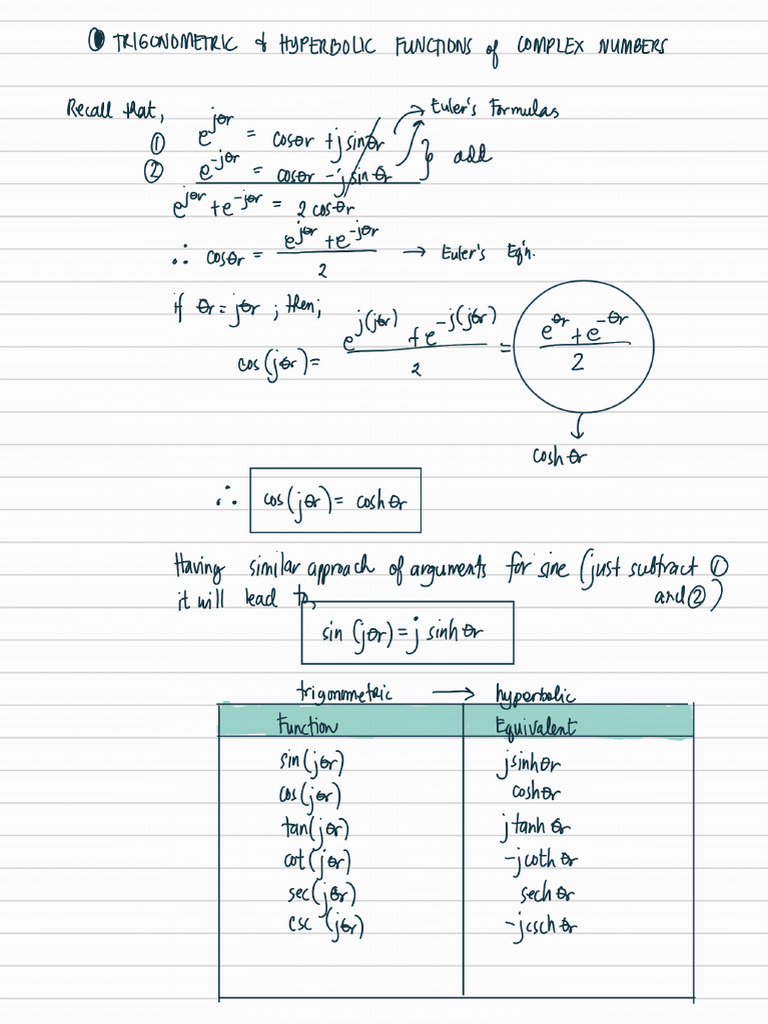 ① TRIGONOMETRIC & HYPERBOLIC FUNCTIONS of COMPLEX NUMBERS
Recall that,
→ Euler's Formulas
① e^{jθr} = cosθr + j sinθr
② e^{-jθr} = cosθr - j sinθr } add
e^{jθr} + e^{-jθr} = 2 cosθr
∴ cosθr = (e^{jθr} + e^{-jθr})/2 → Euler's Eq'n.
if θr = jθr ; then;
cos(jθr) = (e^{j(jθr)} + e^{-j(jθr)})/2 = (e^{θr} + e^{-θr})/2
↓
coshθr
∴ cos(jθr) = coshθr
Having similar approach of arguments for sine (just subtract ①
it will lead to, and ②)
sin (jθr) = j sinhθr
trigonometric → hyperbolic
Function Equivalent
sin(jθr) jsinhθr
cos(jθr) coshθr
tan(jθr) jtanhθr
cot(jθr) -jcothθr
sec(jθr) sechθr
csc(jθr) -jcschθr